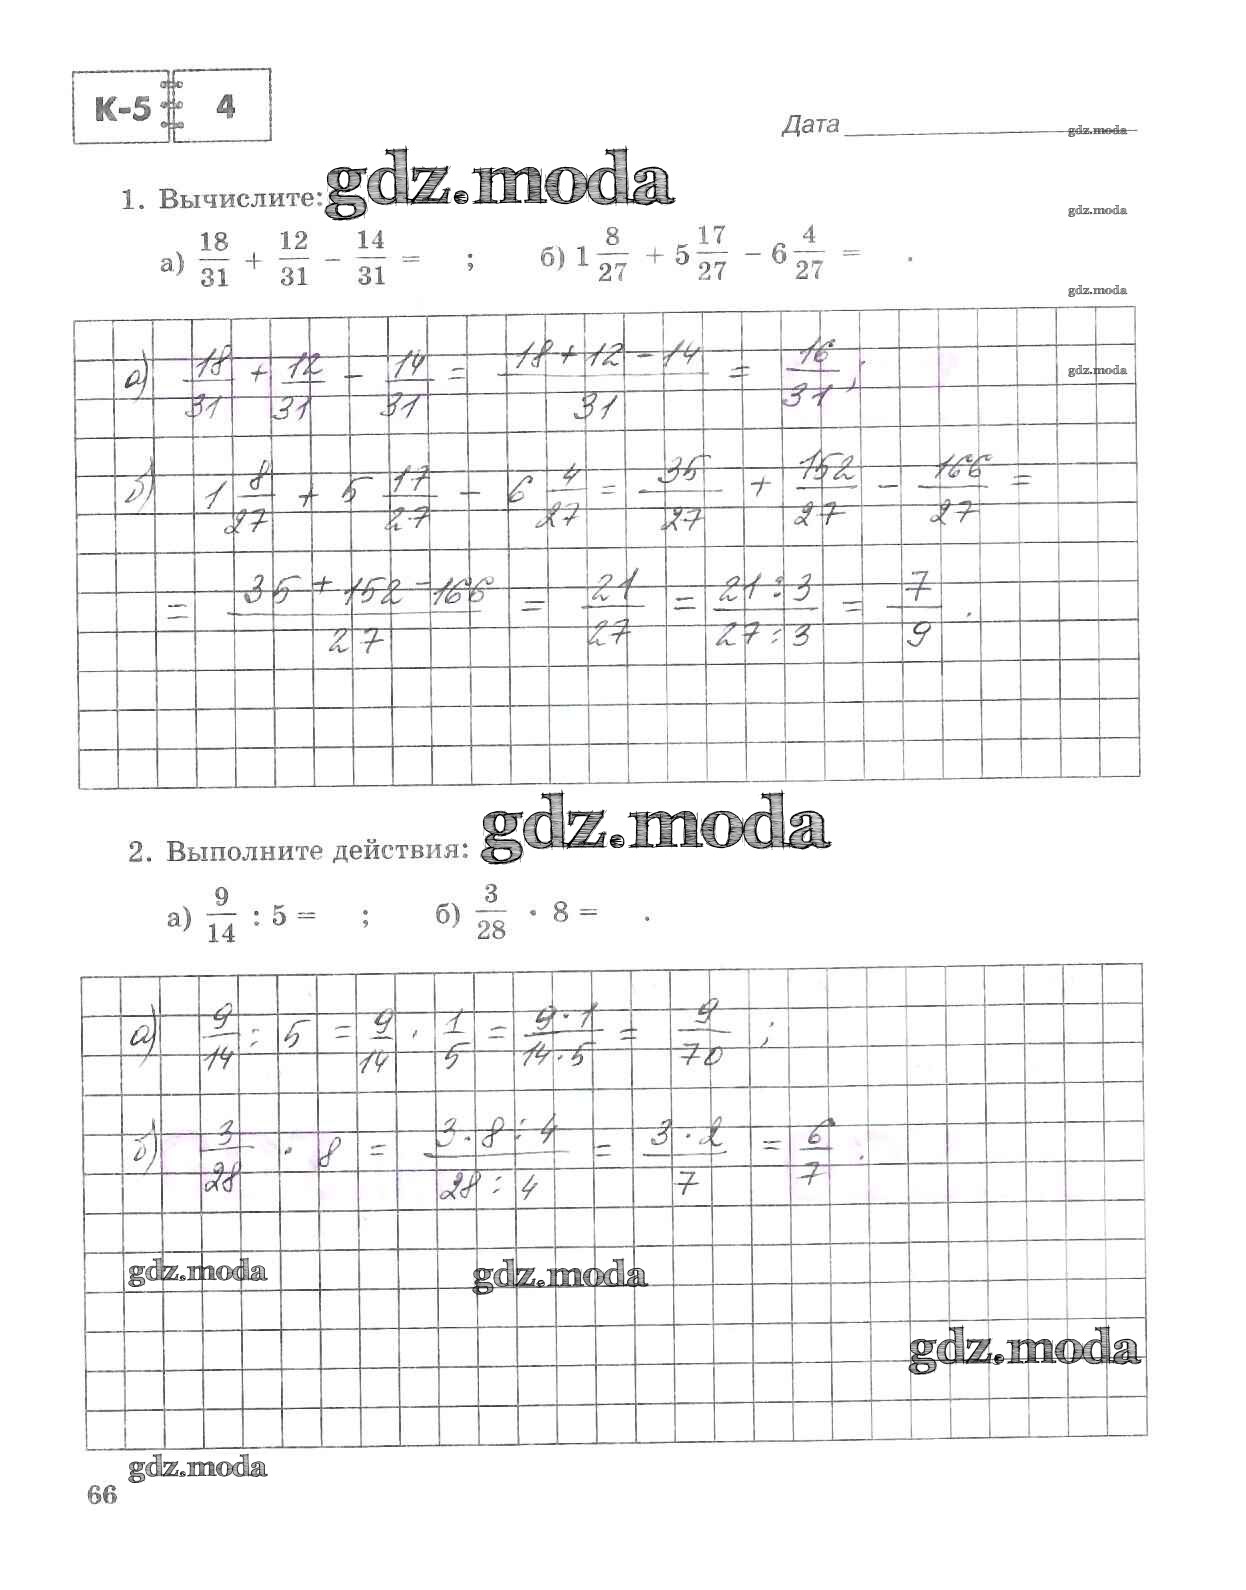 К-5 4
Дата gdz.moda
1. Вычислите: gdz.moda
gdz.moda
а) 18/31 + 12/31 − 14/31 = ; б) 1 8/27 + 5 17/27 − 6 4/27 = .
gdz.moda
а) 18/31 + 12/31 − 14/31 = (18 + 12 − 14)/31 = 16/31 ;
gdz.moda
б) 1 8/27 + 5 17/27 − 6 4/27 = 35/27 + 152/27 − 166/27 =
= (35 + 152 − 166)/27 = 21/27 = (21 : 3)/(27 : 3) = 7/9 .
2. Выполните действия: gdz.moda
а) 9/14 : 5 = ; б) 3/28 · 8 = .
а) 9/14 : 5 = 9/14 · 1/5 = (9 · 1)/(14 · 5) = 9/70 ;
б) 3/28 · 8 = (3 · 8 : 4)/(28 : 4) = (3 · 2)/7 = 6/7 .
gdz.moda gdz.moda
gdz.moda
gdz.moda
66